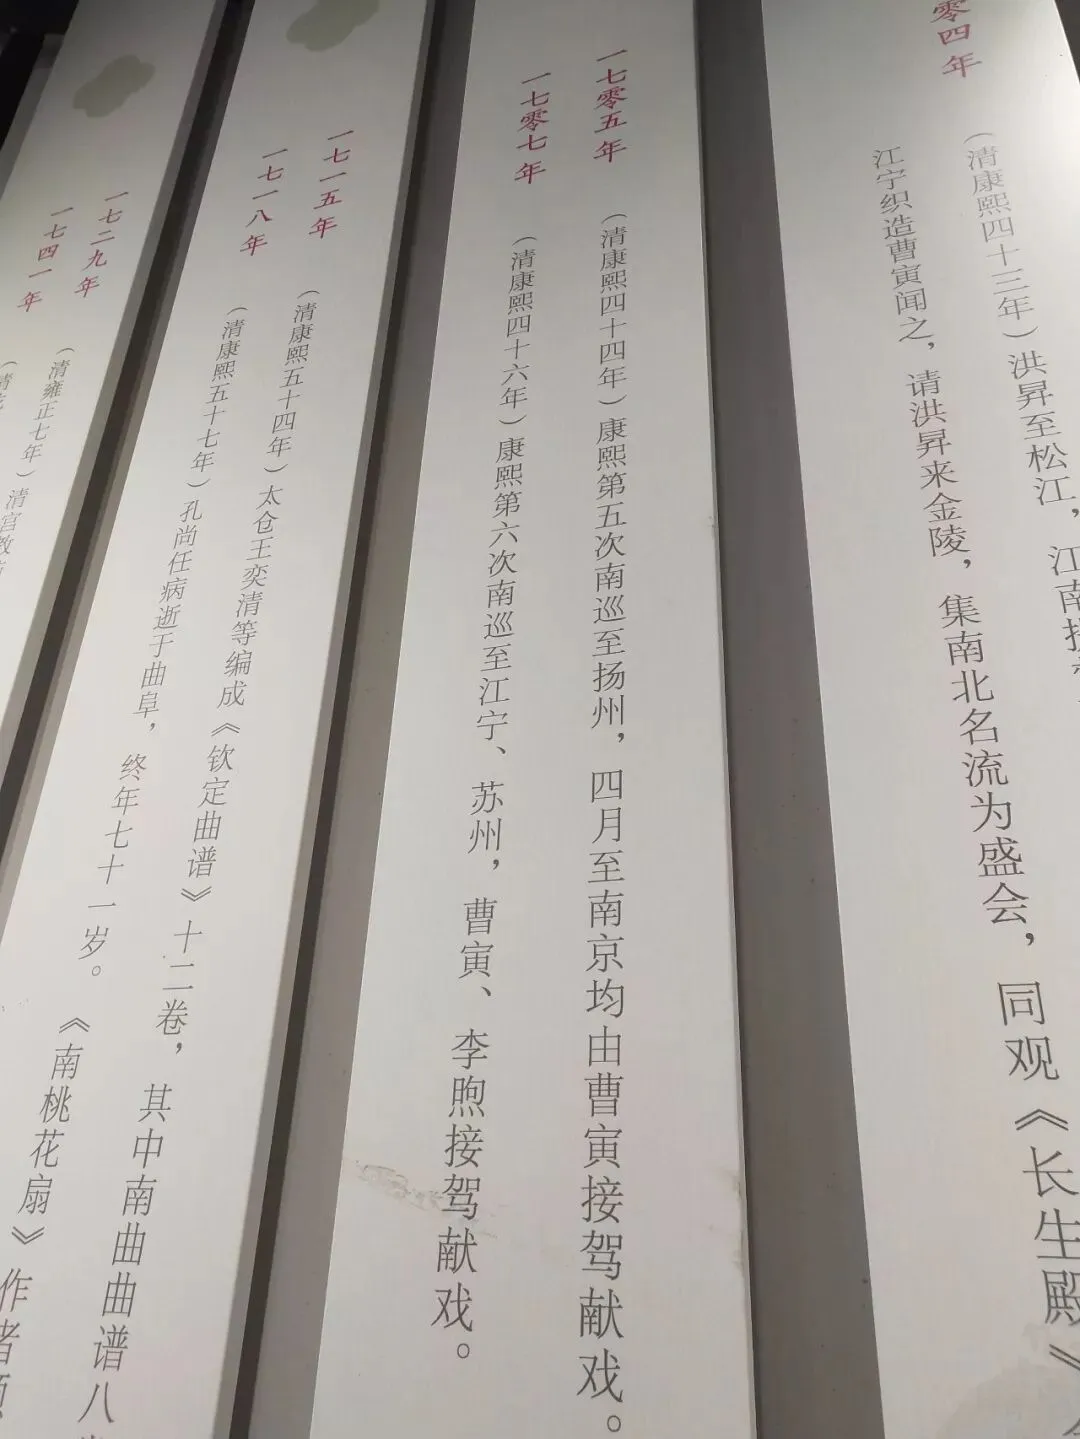 零四年
（清康熙四十三年）洪昇至松江，江南
江宁织造曹寅闻之，请洪昇来金陵，集南北名流为盛会，同观《长生殿》
一七零五年
（清康熙四十四年）康熙第五次南巡至扬州，四月至南京均由曹寅接驾献戏。
一七零七年
（清康熙四十六年）康熙第六次南巡至江宁、苏州，曹寅、李煦接驾献戏。
一七一五年
（清康熙五十四年）太仓王奕清等编成《钦定曲谱》十二卷，其中南曲曲谱八
一七一八年
（清康熙五十七年）孔尚任病逝于曲阜，终年七十一岁。《南桃花扇》作者顾
一七二九年
（清雍正七年）清宫教
一七四一年
（清乾